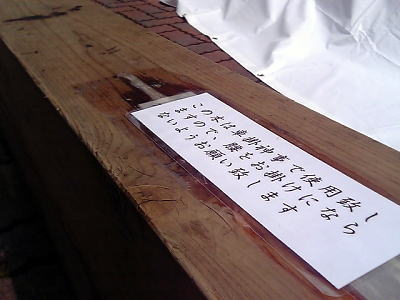 この木は車掛神事で使用致し
ますので、腰をお掛けになら
ないようお願い致します